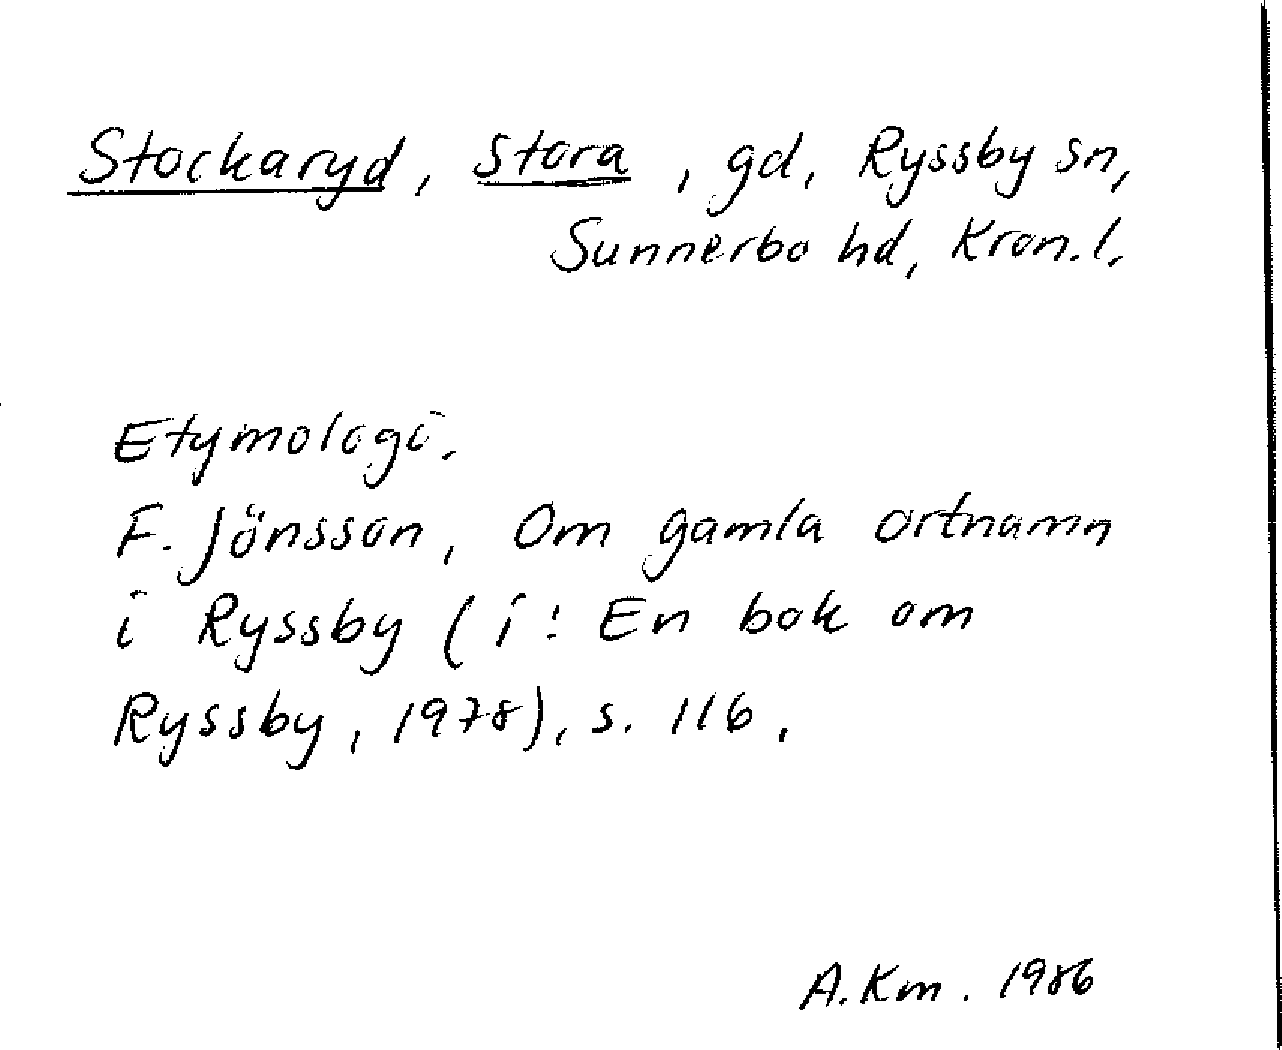 Stockaryd, Stora, gd, Ryssby sn,
Sunnerbo hd, Kron.l.
Etymologi.
F. Jönsson, Om gamla ortnamn
i Ryssby (i: En bok om
Ryssby, 1978), s. 116.
A.Km. 1986